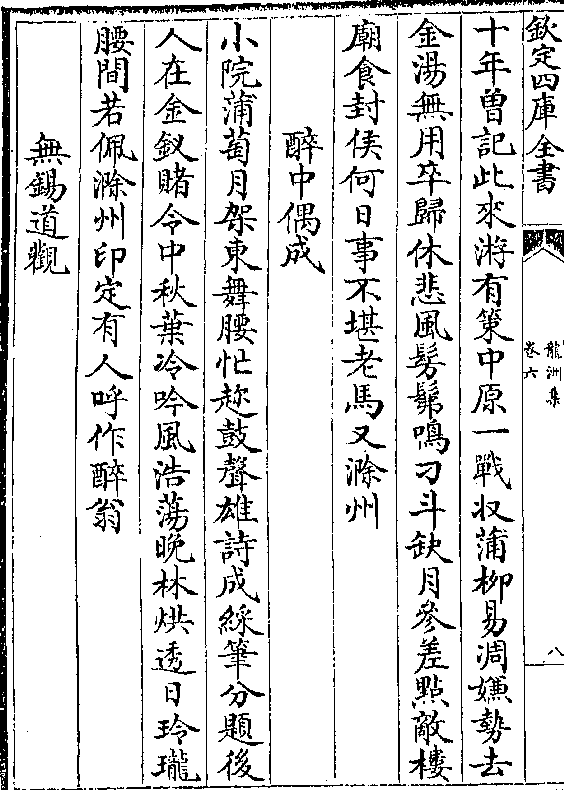 欽定四庫全書
龍洲集
卷六
八
十年曽記此來游有策中原一戰収蒲柳易凋嫌勢去
金湯無用卒歸休悲風髣髴鳴刁斗缺月參差點敵樓
廟食封侯何日事不堪老馬又滁州
醉中偶成
小院蒲萄月架東舞腰忙趂鼓聲雄詩成綵筆分題後
人在金釵賭令中秋葉冷吟風浩蕩晚林烘透日玲瓏
腰間若佩滁州印定有人呼作醉翁
無錫道觀